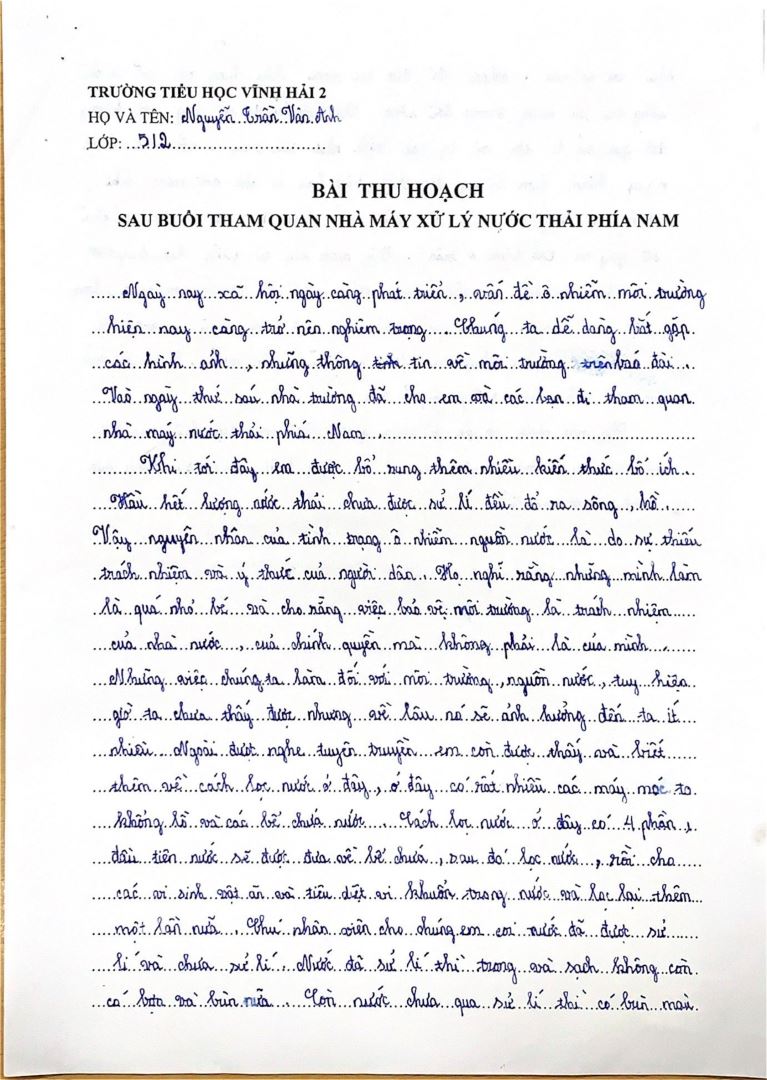 TRƯỜNG TIỂU HỌC VĨNH HẢI 2
HỌ VÀ TÊN: Nguyễn Trần Vân Anh
LỚP: 5/2
BÀI THU HOẠCH
SAU BUỔI THAM QUAN NHÀ MÁY XỬ LÝ NƯỚC THẢI PHÍA NAM
Ngày nay xã hội ngày càng phát triển, vấn đề ô nhiễm môi trường
hiện nay càng trở nên nghiêm trọng. Chúng ta dễ dàng bắt gặp
các hình ảnh, những thông tin về môi trường trên báo đài.
Vào ngày thứ sáu nhà trường đã cho em và các bạn đi tham quan
nhà máy nước thải phía Nam.
Khi tới đây em được bổ sung thêm nhiều kiến thức bổ ích.
Hầu hết lượng nước thải chưa được sử lí đều đổ ra sông, hồ.
Vậy nguyên nhân của tình trạng ô nhiễm nguồn nước là do sự thiếu
trách nhiệm và ý thức của người dân. Họ nghĩ rằng những mình làm
là quá nhỏ bé và cho rằng việc bảo vệ môi trường là trách nhiệm
của nhà nước, của chính quyền mà không phải là của mình.
Những việc chúng ta làm đối với môi trường, nguồn nước, tuy hiện
giờ ta chưa thấy được nhưng về lâu nó sẽ ảnh hưởng đến ta ít
nhiều. Ngoài được nghe tuyên truyền em còn được thấy và biết
thêm về cách lọc nước ở đây, ở đây có rất nhiều các máy móc to
khổng lồ và các bể chứa nước. Cách lọc nước ở đây có 4 phần,
đầu tiên nước sẽ được đưa về bể chứa, sau đó lọc nước, rồi cho
các vi sinh vật ăn và tiêu diệt vi khuẩn trong nước và lọc lại thêm
một lần nữa. Chú nhân viên cho chúng em coi nước đã được sử
lí và chưa sử lí. Nước đã sử lí thì trong và sạch không còn
có bợn và bùn nữa. Còn nước chưa qua sử lí thì có bùn màu